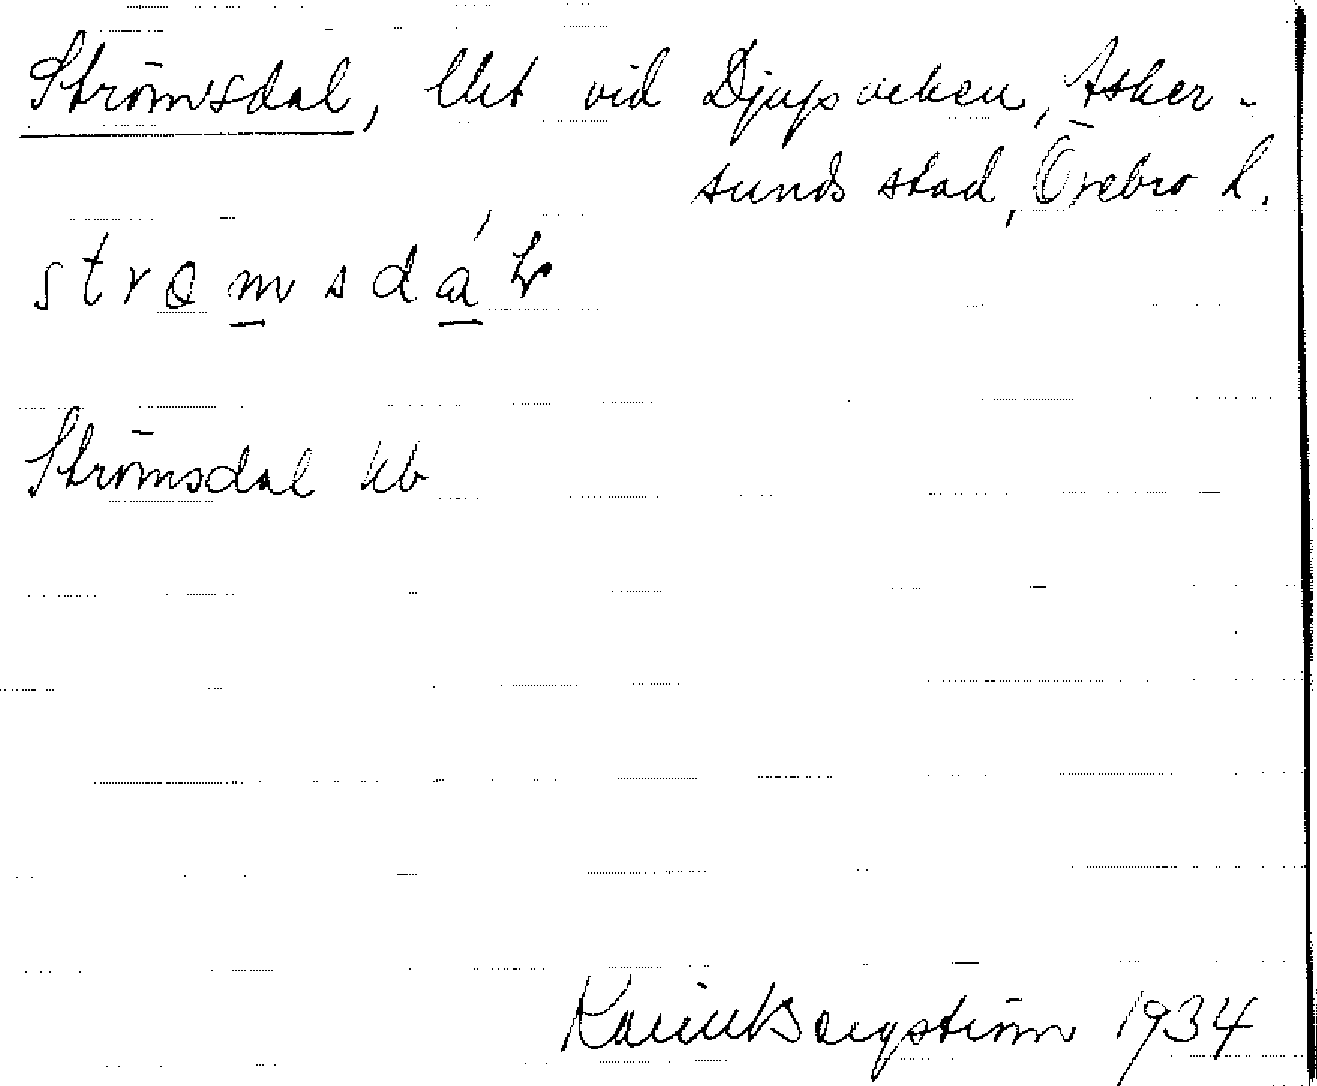 Strömsdal, lht vid Djupsviken, Asker-
sunds stad, Örebro l.
Strömsdal kb
Karin Bergström 1934